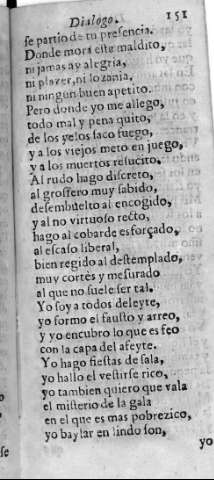 Dialogo. 151
se partio de tu presencia.
Donde mora este maldito,
ni jamas ay alegria,
ni plazer, ni lozania,
ni ningun buen apetito.
Pero donde yo me allego,
todo mal y pena quito,
de los yelos saco fuego,
y a los viejos meto en juego,
y a los muertos resucito.
Al rudo hago discreto,
al grossero muy sabido,
desembuelto al encogido,
y al no virtuoso recto,
hago al cobarde esforçado,
al escaso liberal,
bien regido al destemplado,
muy cortès y mesurado
al que no suele ser tal.
Yo soy a todos deleyte,
yo formo el fausto y arreo,
y yo encubro lo que es feo
con la capa del afeyte.
Yo hago fiestas de sala,
yo hallo el vestirse rico,
yo tambien quiero que vala
el misterio de la gala
en el que es mas pobrezico,
yo baylar en lindo son,
yo
se